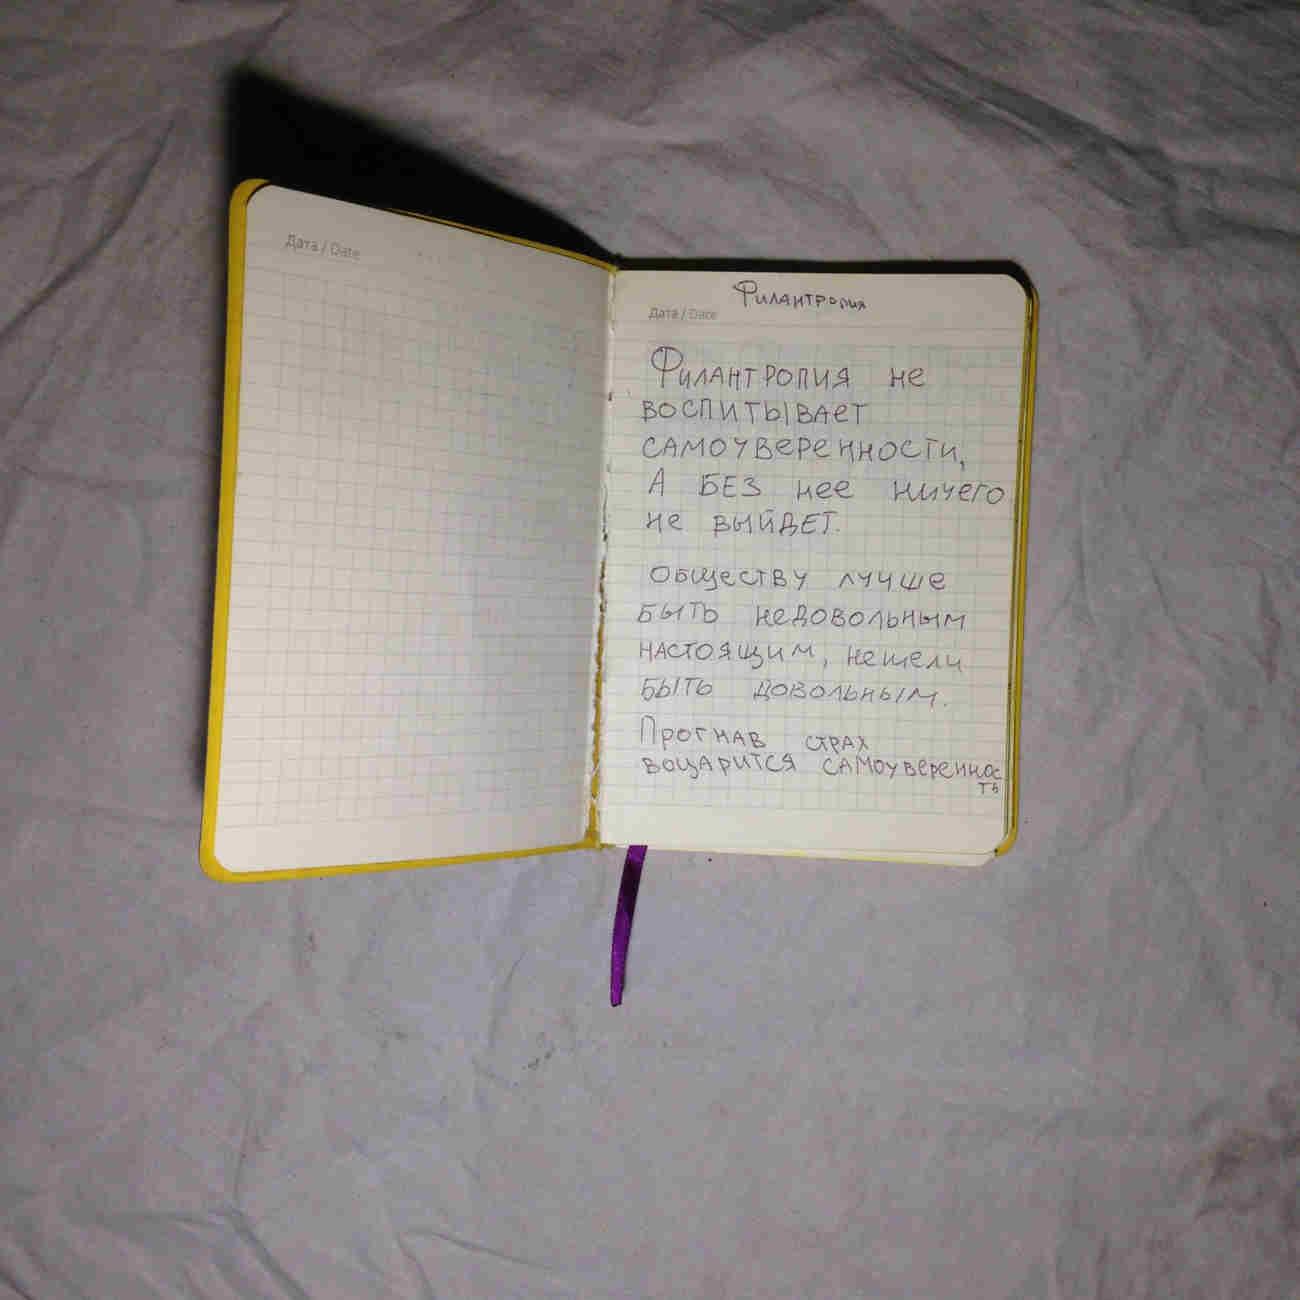 Дата / Date
Филантропия
Дата / Date
Филантропия не
воспитывает
самоуверенности,
а без нее ничего
не выйдет.
Обществу лучше
быть недовольным
настоящим, нежели
быть довольным.
Прогнав страх
воцарится самоувереннос
ть